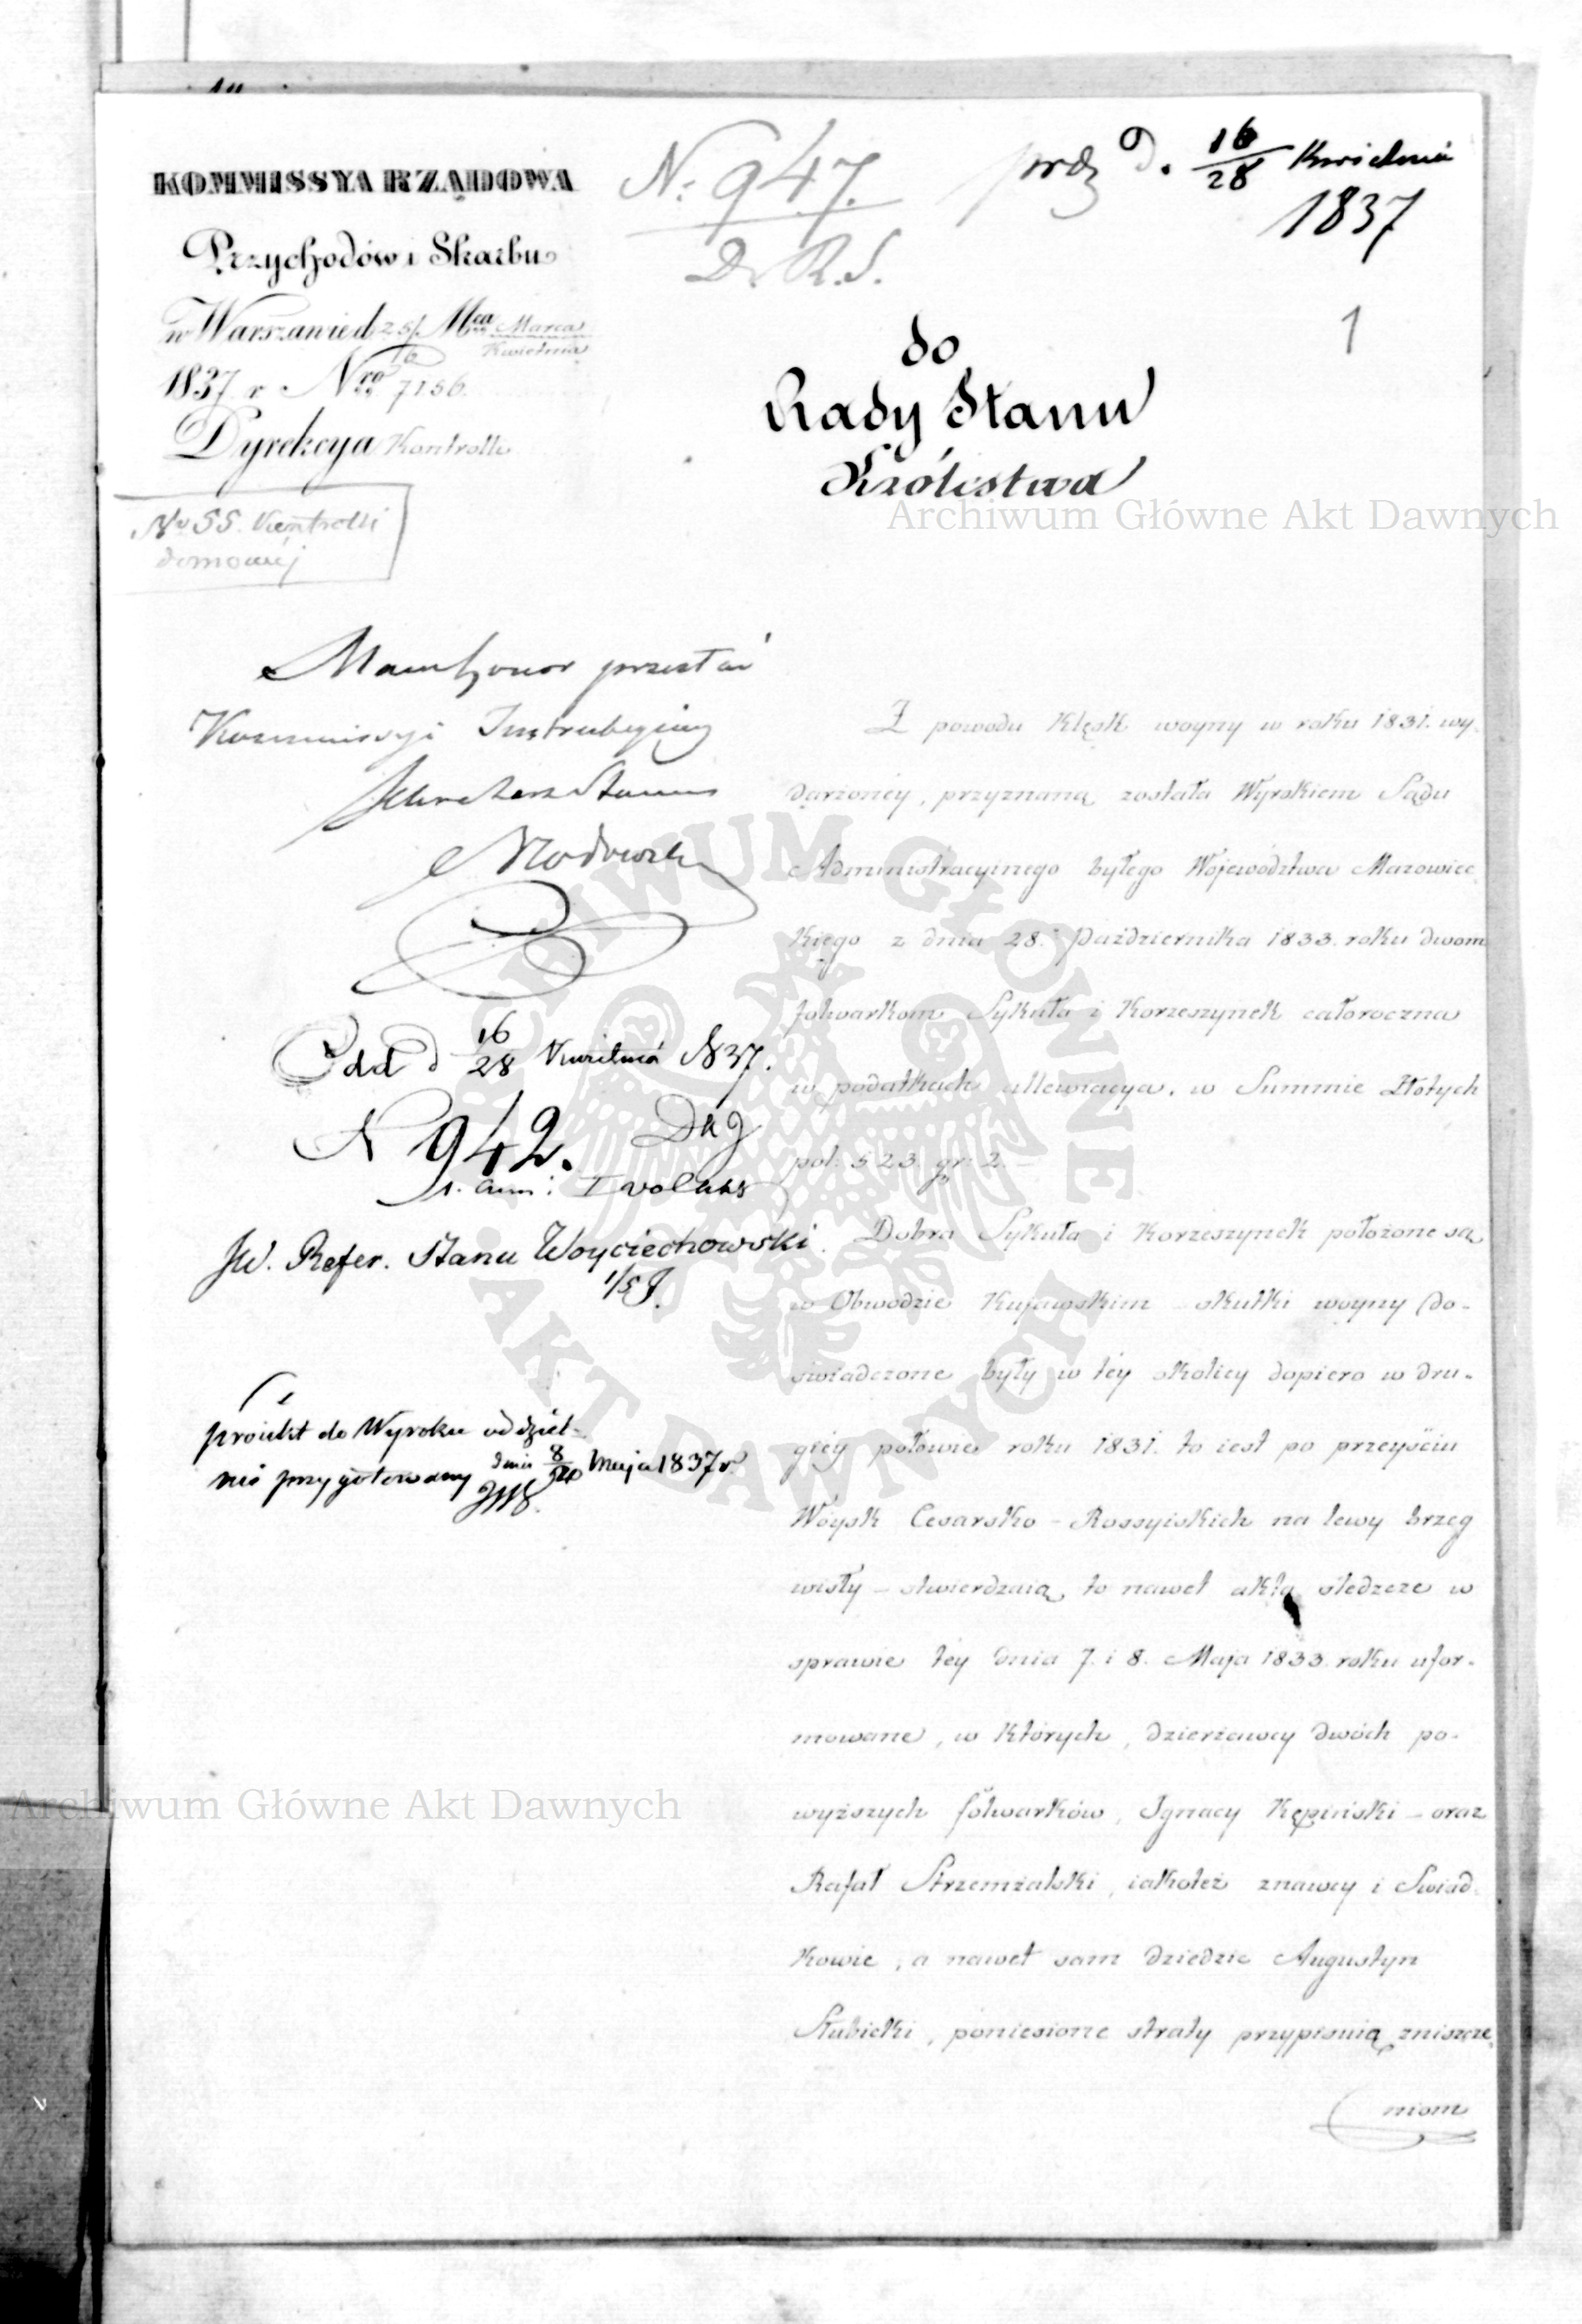 KOMMISSYA RZĄDOWA
Przychodów i Skarbu
w Warszawie d 25/16 Mca Marca/Kwietnia
1837 r Nro 7156.
Dyrekcya Kontrolli
No 55. Kontrolli
domowéj
N: 947.
D. R. S.
prdz d. 16/28 Kwietnia
1837
1
do
Rady Stanu
Królestwa
Archiwum Główne Akt Dawnych
Mam honor przesłać
Kommissyi Instrukcyjney
Sekretarz Stanu
Odd d 16/28 Kwietnia 1837.
N 942.
I volum
JW. Refer. Stanu Woyciechowski
1/5 J.
proiekt do Wyroku oddziel-
nie przygotowany dnia 8/20 Maja 1837 r.
Z powodu klęsk woyny w roku 1831. wy-
darzoney, przyznaną została Wyrokiem Sądu
Administracyinego byłego Województwa Mazowiec
kiego z dnia 28. Października 1833. roku dwom
folwarkom Sykuła i Korzeszynek całoroczna
w podatkach allewiacya, w Summie Złotych
pol. 523. gr. 2.
Dobra Sykuła i Korzeszynek położone są
w Obwodzie Kujawskim – skutki woyny do-
świadczone były w téy okolicy dopiero w dru-
giéy połowie roku 1831. to iest po przeyściu
Woysk Cesarsko – Rossyiskich na lewy brzeg
wisły – stwierdzaią to nawet akta śledzcze w
sprawie téy dnia 7. i 8. Maja 1833. roku ufor-
mowane, w których, dzierżawcy dwóch po-
wyższych folwarków, Ignacy Kępiński – oraz
Rafał Strzemżalski, iakoteż znawcy i Swiad-
kowie, a nawet sam dziedzic Augustyn
Słubicki, poniesione straty przypisuią zniszcze
niom
Archiwum Główne Akt Dawnych
ARCHIWUM GŁÓWNE AKT DAWNYCH